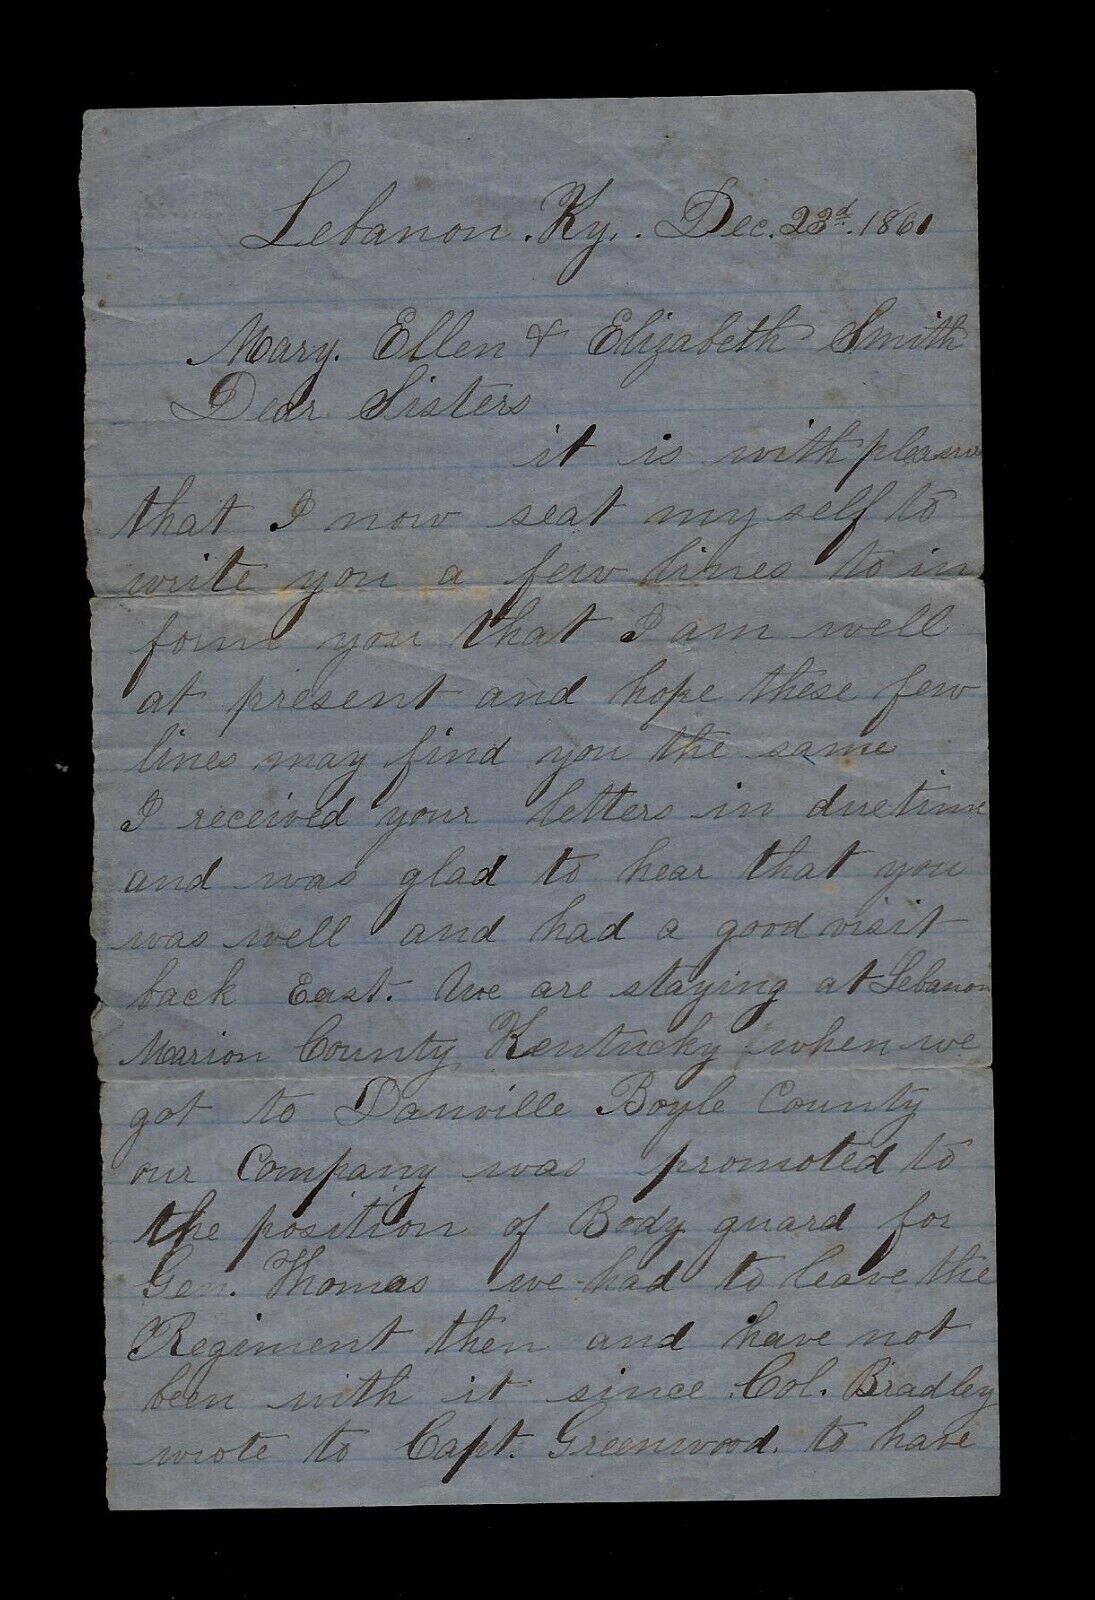 Lebanon. Ky. Dec. 23d. 1861
Mary. Ellen & Elizabeth Smith
Dear Sisters
it is with pleasure
that I now seat my self to
write you a few lines to in
form you that I am well
at present and hope these few
lines may find you the same
I received your letters in due time
and was glad to hear that you
was well and had a good visit
back East. We are staying at Lebanon
Marion County Kentucky when we
got to Danville Boyle County
our Company was promoted to
the position of Body guard for
Gen. Thomas we had to leave the
Regiment then and have not
been with it since Col. Bradley
wrote to Capt. Greenwood. to have